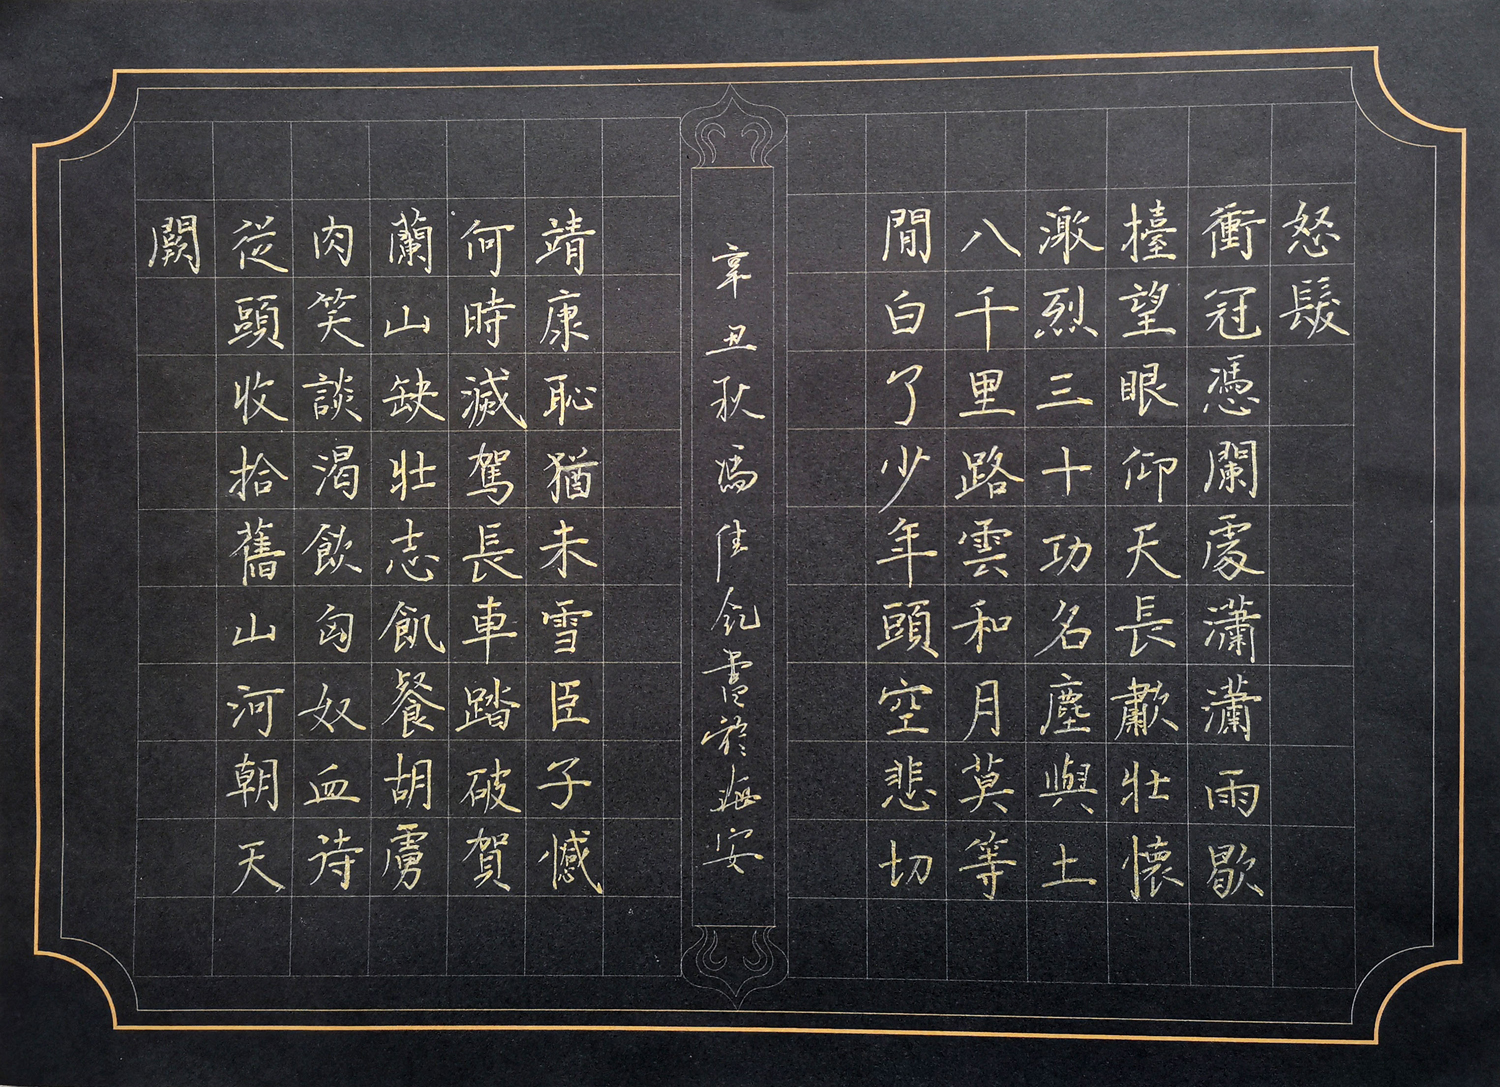 怒髮
衝冠憑闌處瀟瀟雨歇
擡望眼仰天長歗壯懷
激烈三十功名塵與土
八千里路雲和月莫等
閒白了少年頭空悲切
辛丑秋為佳書於海安
靖康恥猶未雪臣子憾
何時滅駕長車踏破賀
蘭山缺壯志飢餐胡虜
肉笑談渴飲匈奴血待
從頭收拾舊山河朝天
闕